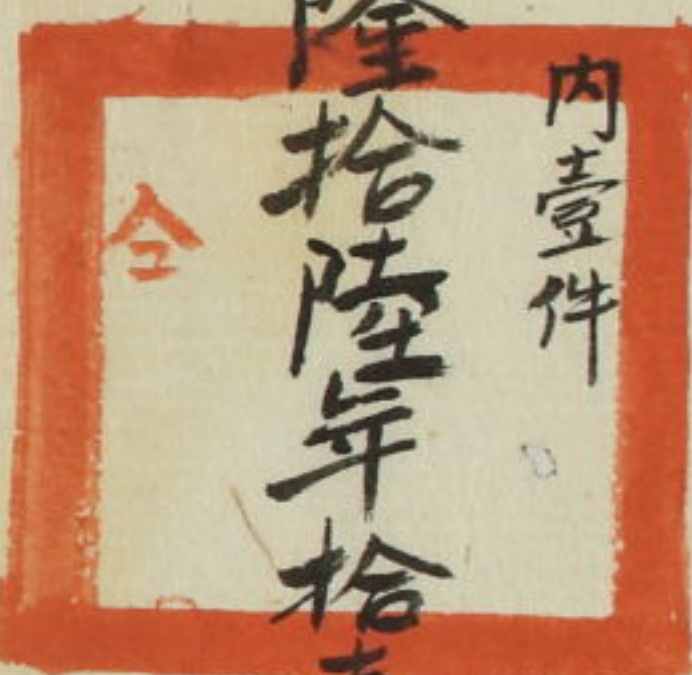 内壹件
隆拾陸年拾
仝